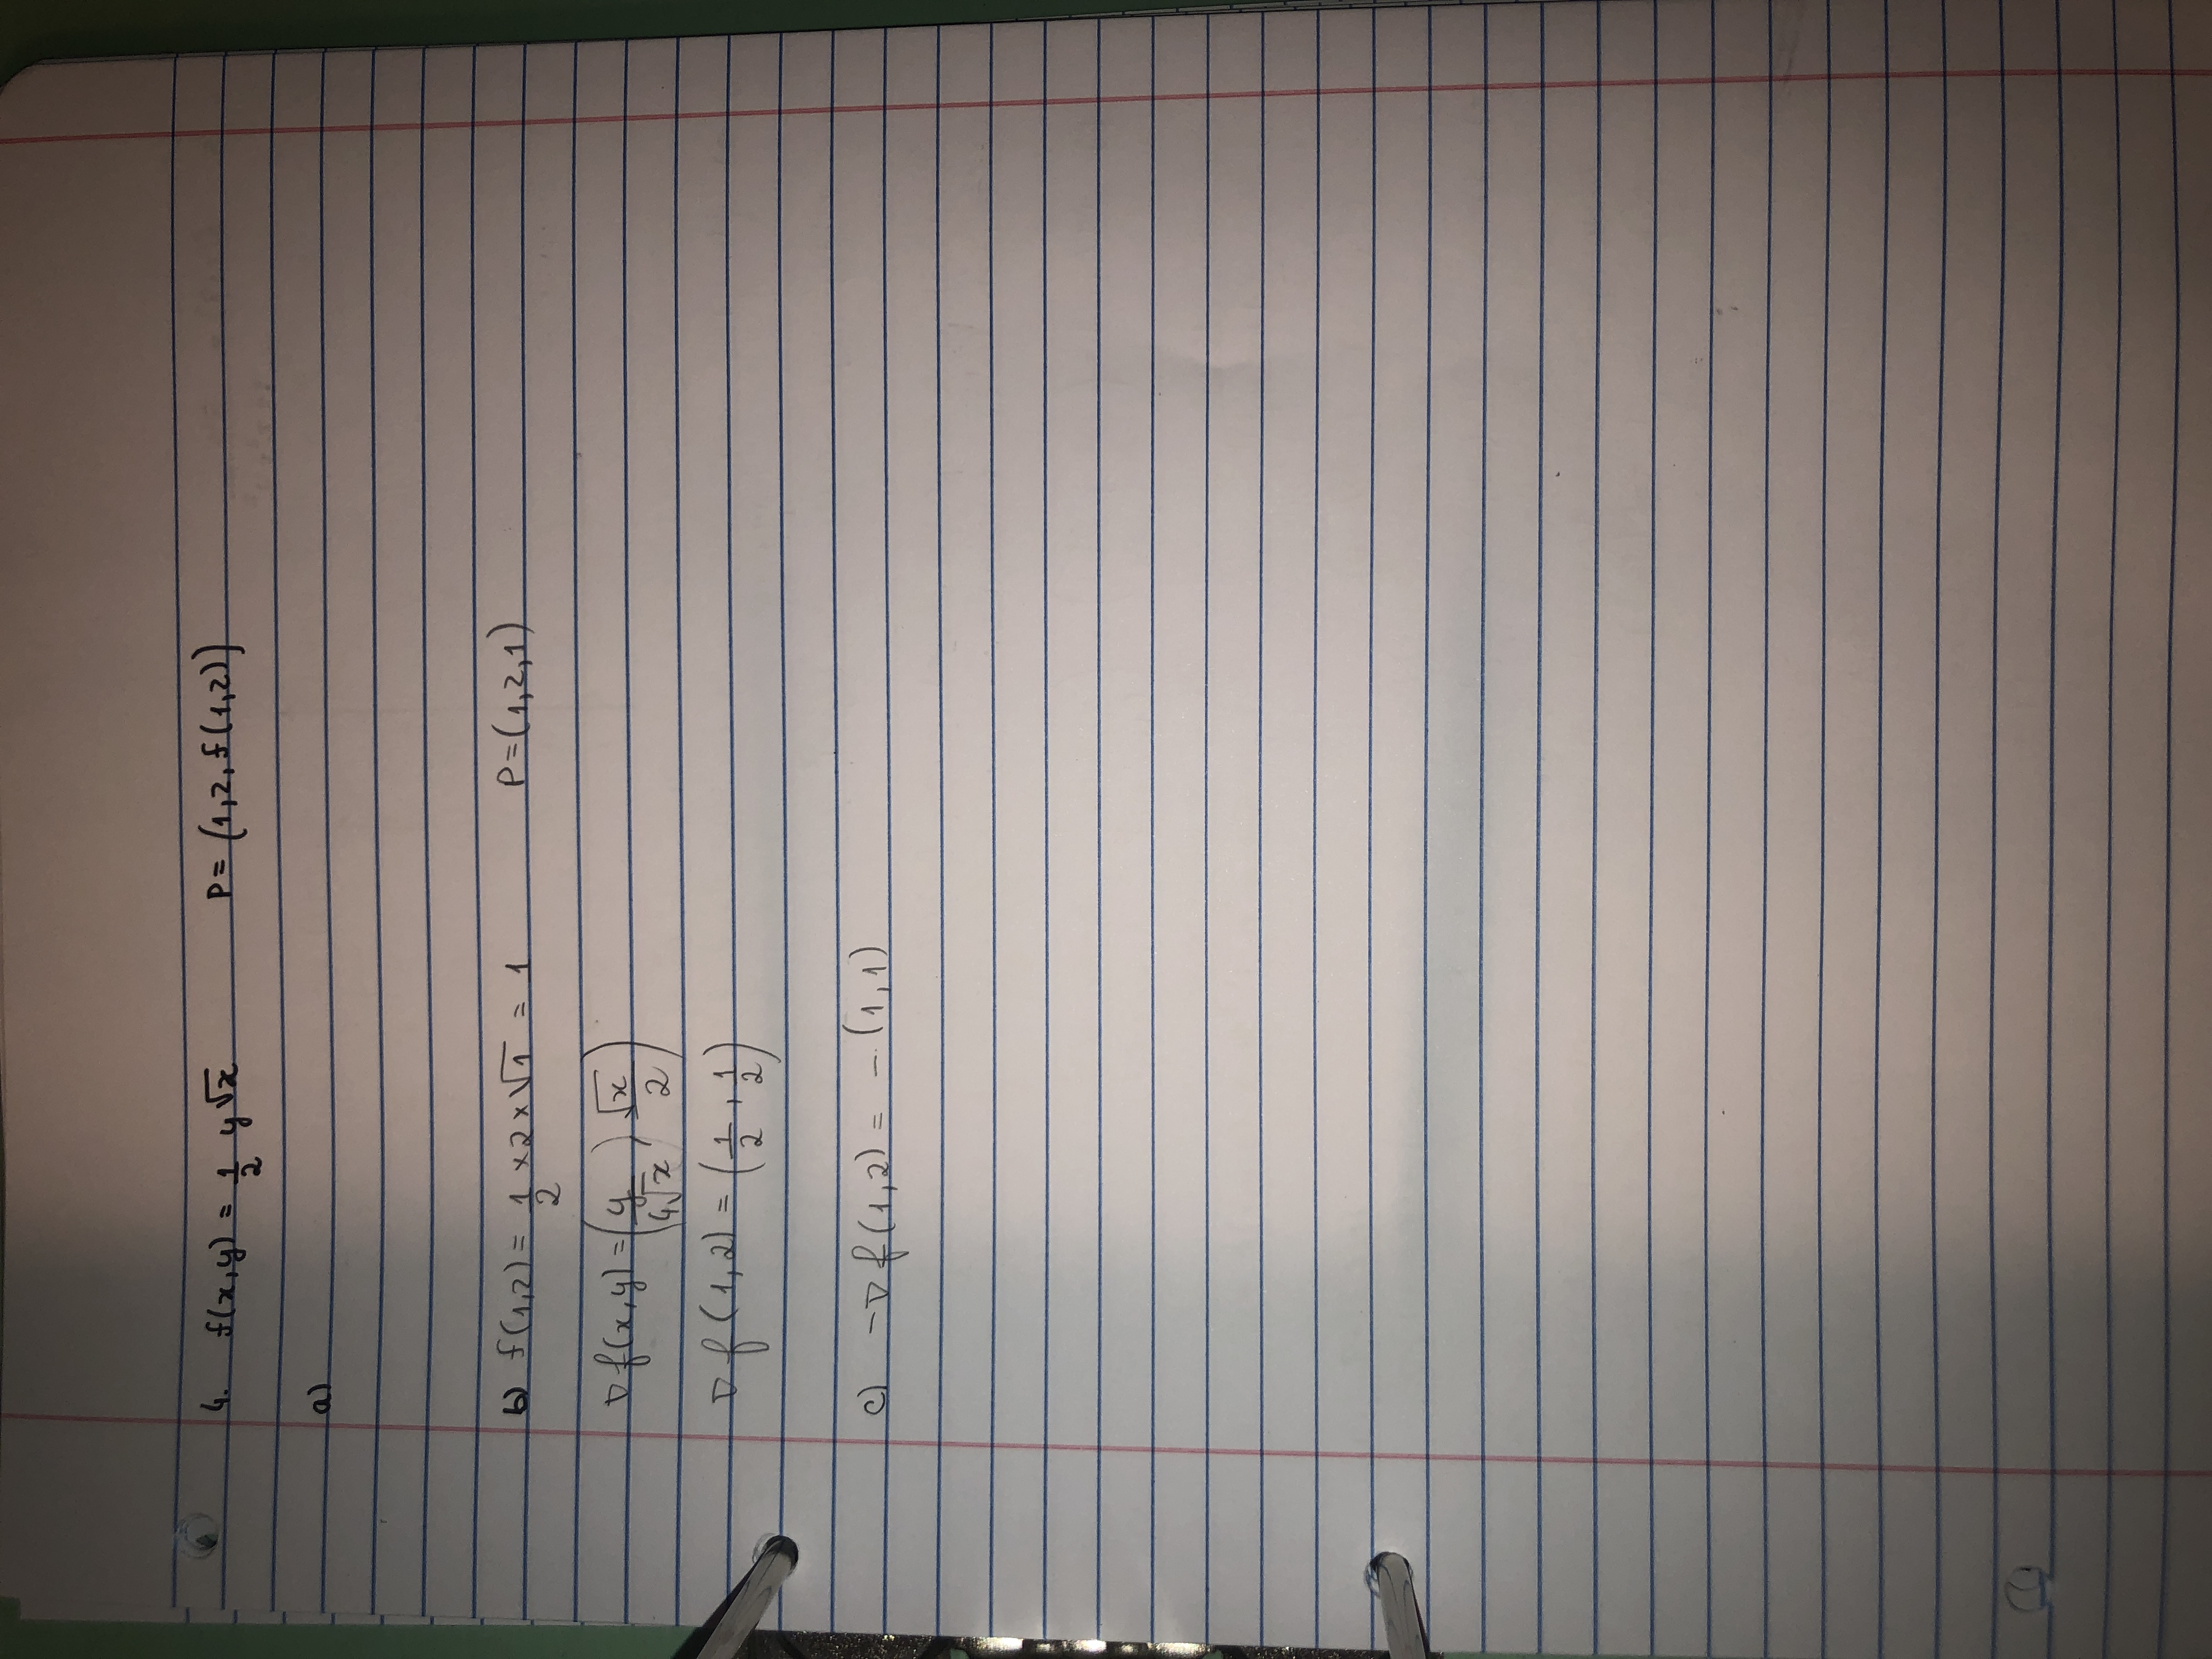 4. f(x,y) = 1/2 y√x P = (1,2, f(1,2))
a)
b) f(1,2) = 1/2 × 2 × √1 = 1 P = (1,2,1)
∇f(x,y) = (y/4√x, √x/2)
∇f(1,2) = (1/2, 1/2)
c) -∇f(1,2) = -(1,1)